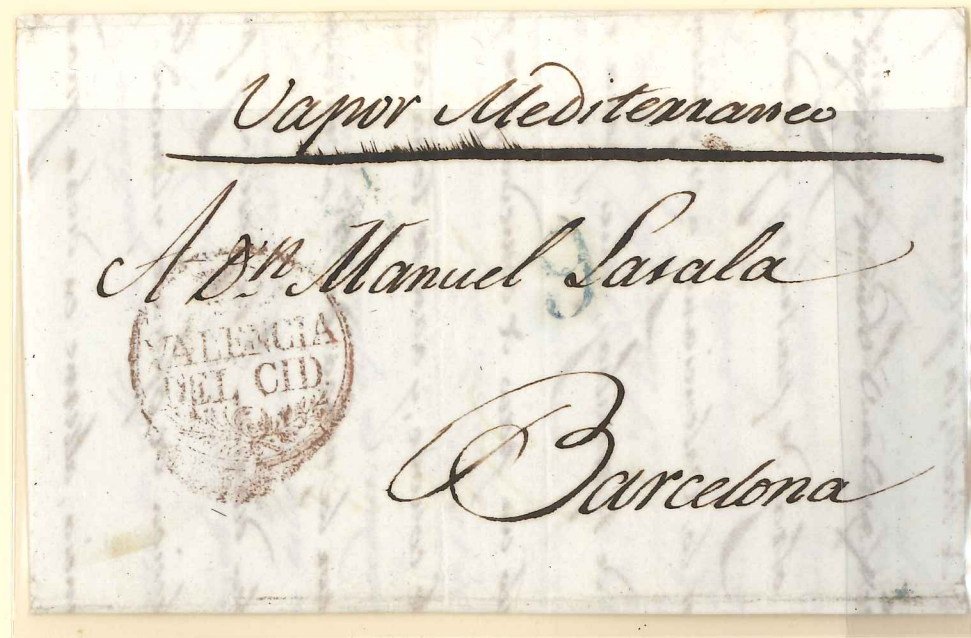 Vapor Mediterraneo
A Dn Manuel Lasala
9
VALENCIA
DEL CID
Barcelona